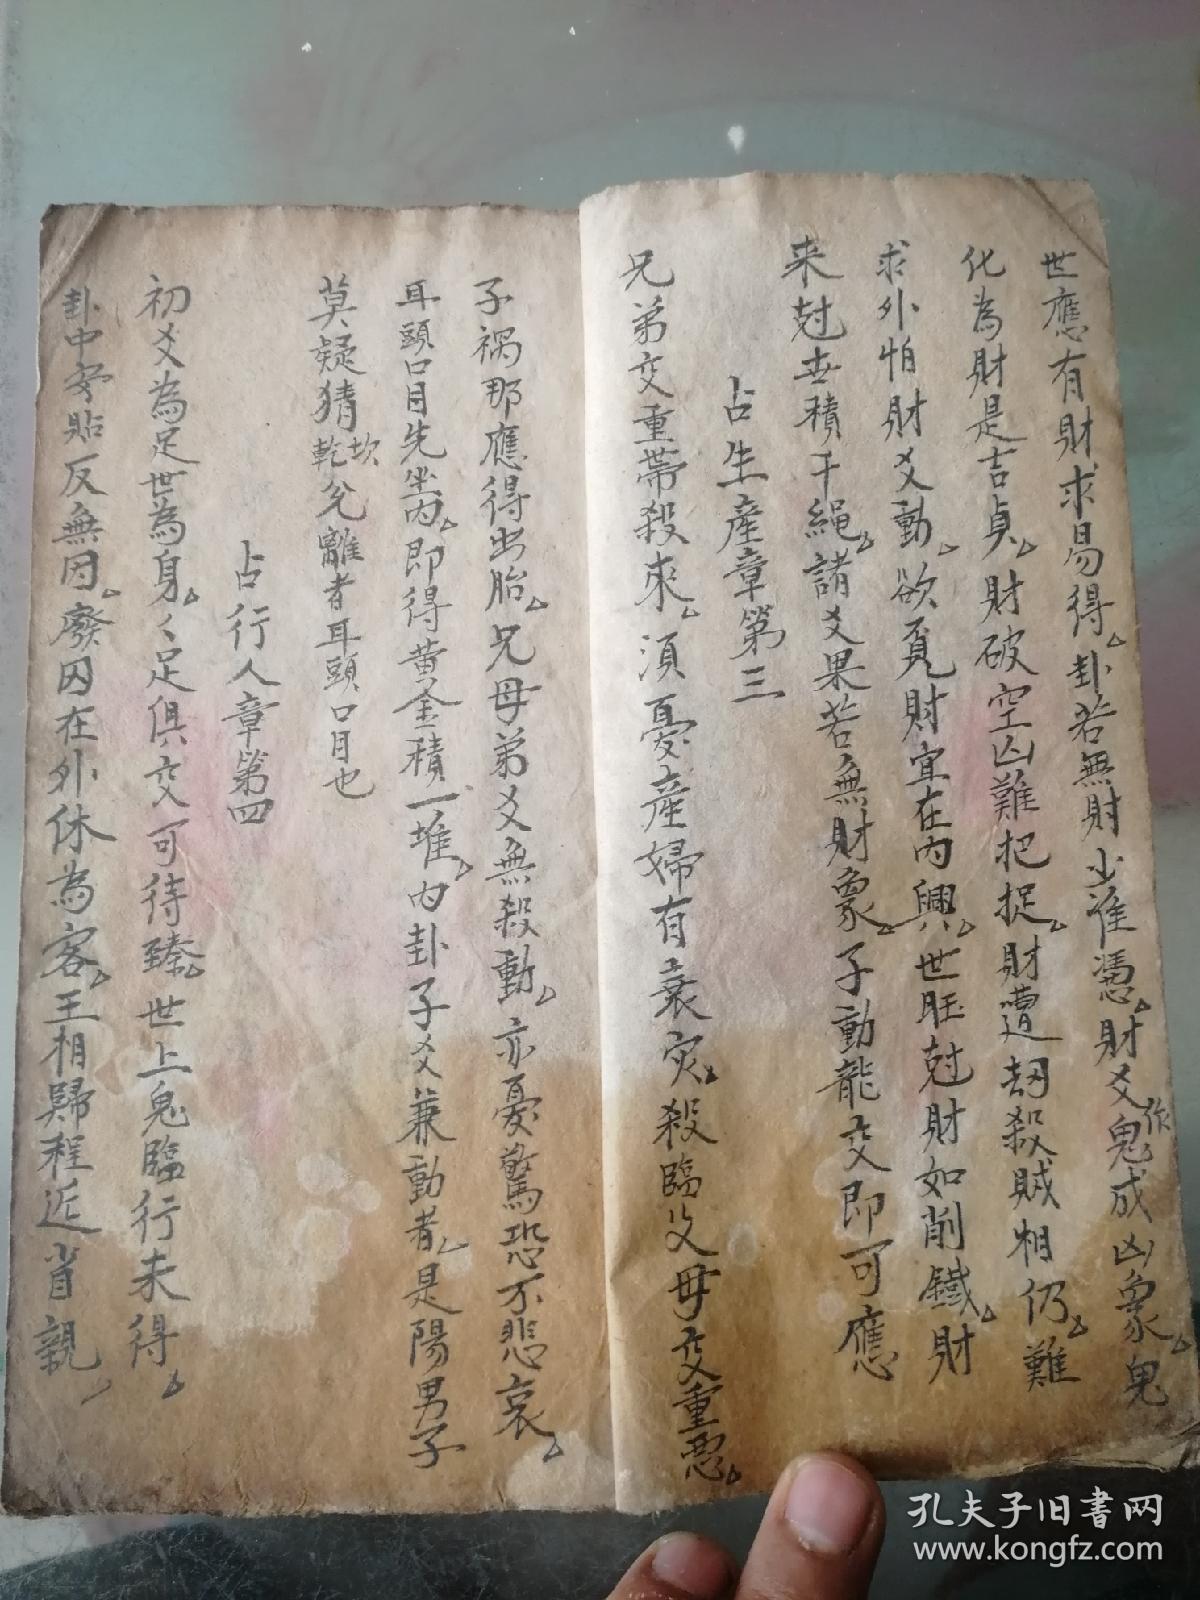 世應有財求易得卦若無財少准憑財爻作鬼成凶象鬼
化為財是吉貞財破空凶難把捉財遭刼殺賊相仍難
求外怕財爻動欲覓財宜在內興世旺尅財如削鐵財
来尅世積千繩諸爻果若無財象子動龍交即可應
占生產章第三
兄弟交重帶殺來須憂產婦有衰灾殺臨父母交重惡
子禍那應得出胎兄母弟爻無殺動亦憂驚恐不悲哀
耳頭口目先坐內即得黄金積一堆內卦子爻兼動者是陽男子
莫疑猜乾坎兌離者耳頭口目也
占行人章第四
初爻為足世為身々足俱交可待臻世上鬼臨行未得
卦中安貼反無因廢囚在外休為客王相歸程近省親
孔夫子旧书网
www.kongfz.com